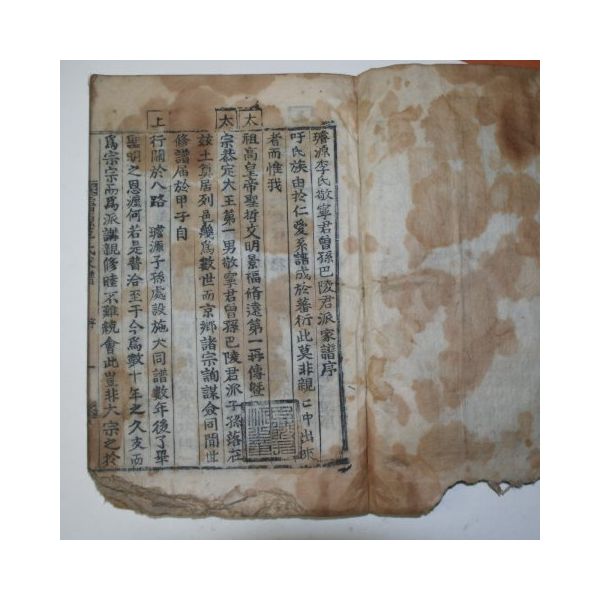 璿源李氏敬寧君曾孫巴陵君派家譜序
吁氏族由於仁愛系譜成於蕃衍此莫非親
者而惟我
太祖高皇帝聖哲文明景福脩遠第一再傳暨
太宗恭定大王第一男敬寧君曾孫巴陵君派子孫落在
玆土奠居列邑藥爲數世而京鄕諸宗詢謀僉同聞世
修譜屆於甲子自
上行關於八路 璿源子孫處設施大同譜數年後了畢
聖明之恩渥何若是普洽至于今爲數十年之久支而
爲宗宗而爲派講親修睦不難統會此豈非大宗之於